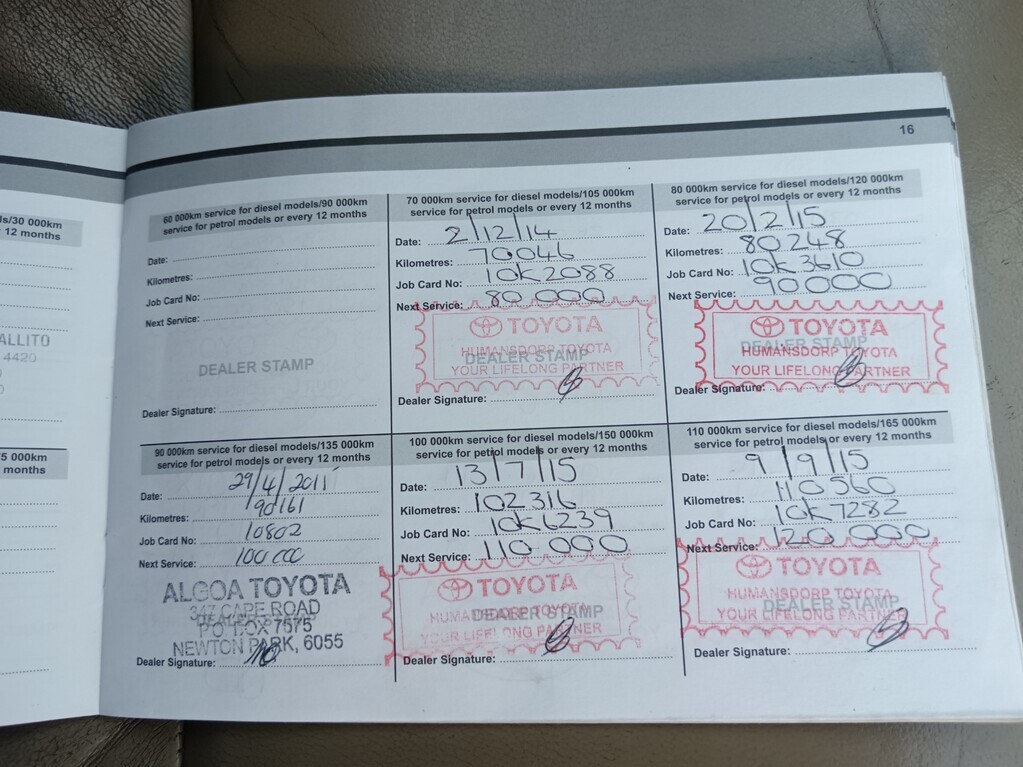 16
s/30 000km
12 months
ALLITO
4420
5 000km
months
60 000km service for diesel models/90 000km
service for petrol models or every 12 months
Date:
Kilometres:
Job Card No:
Next Service:
DEALER STAMP
Dealer Signature:
70 000km service for diesel models/105 000km
service for petrol models or every 12 months
Date: 2/12/14
Kilometres: 70046
Job Card No: 10K2088
Next Service: 80 000
TOYOTA
HUMANSDORP TOYOTA
DEALER STAMP
YOUR LIFELONG PARTNER
Dealer Signature:
80 000km service for diesel models/120 000km
service for petrol models or every 12 months
Date: 20/2/15
Kilometres: 80248
Job Card No: 10K3610
Next Service: 90000
TOYOTA
DEALER STAMP
HUMANSDORP TOYOTA
YOUR LIFELONG PARTNER
Dealer Signature:
90 000km service for diesel models/135 000km
service for petrol models or every 12 months
Date: 29/4/2011
Kilometres: 90161
Job Card No: 10802
Next Service: 100 000
ALGOA TOYOTA
347 CAPE ROAD
DEALER STAMP
P O BOX 7575
NEWTON PARK, 6055
Dealer Signature:
100 000km service for diesel models/150 000km
service for petrol models or every 12 months
Date: 13/7/15
Kilometres: 102316
Job Card No: 10K6239
Next Service: 110 000
TOYOTA
HUMANSDORP TOYOTA
DEALER STAMP
YOUR LIFELONG PARTNER
Dealer Signature:
110 000km service for diesel models/165 000km
service for petrol models or every 12 months
Date: 9/9/15
Kilometres: 110560
Job Card No: 10K7282
Next Service: 120 000
TOYOTA
HUMANSDORP TOYOTA
DEALER STAMP
YOUR LIFELONG PARTNER
Dealer Signature: